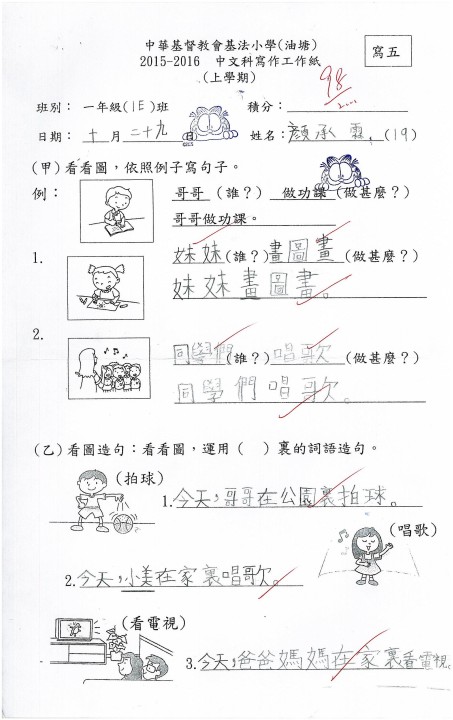 中華基督教會基法小學(油塘)
寫五
2015-2016 中文科寫作工作紙
(上學期)
98
班別： 一年級(1E)班 積分：
日期： 十 月 二十九 日 姓名：顏承霖 (19)
(甲)看看圖，依照例子寫句子。
例： 哥哥 (誰？) 做功課 (做甚麼？)
哥哥做功課。
1. 妹妹(誰？)畫圖畫(做甚麼？)
妹妹畫圖畫。
2. 同學們(誰？)唱歌(做甚麼？)
同學們唱歌。
(乙)看圖造句：看看圖，運用( )裏的詞語造句。
(拍球)
1.今天，哥哥在公園裏拍球。
(唱歌)
2.今天，小美在家裏唱歌。
(看電視)
3.今天，爸爸媽媽在家裏看電視。